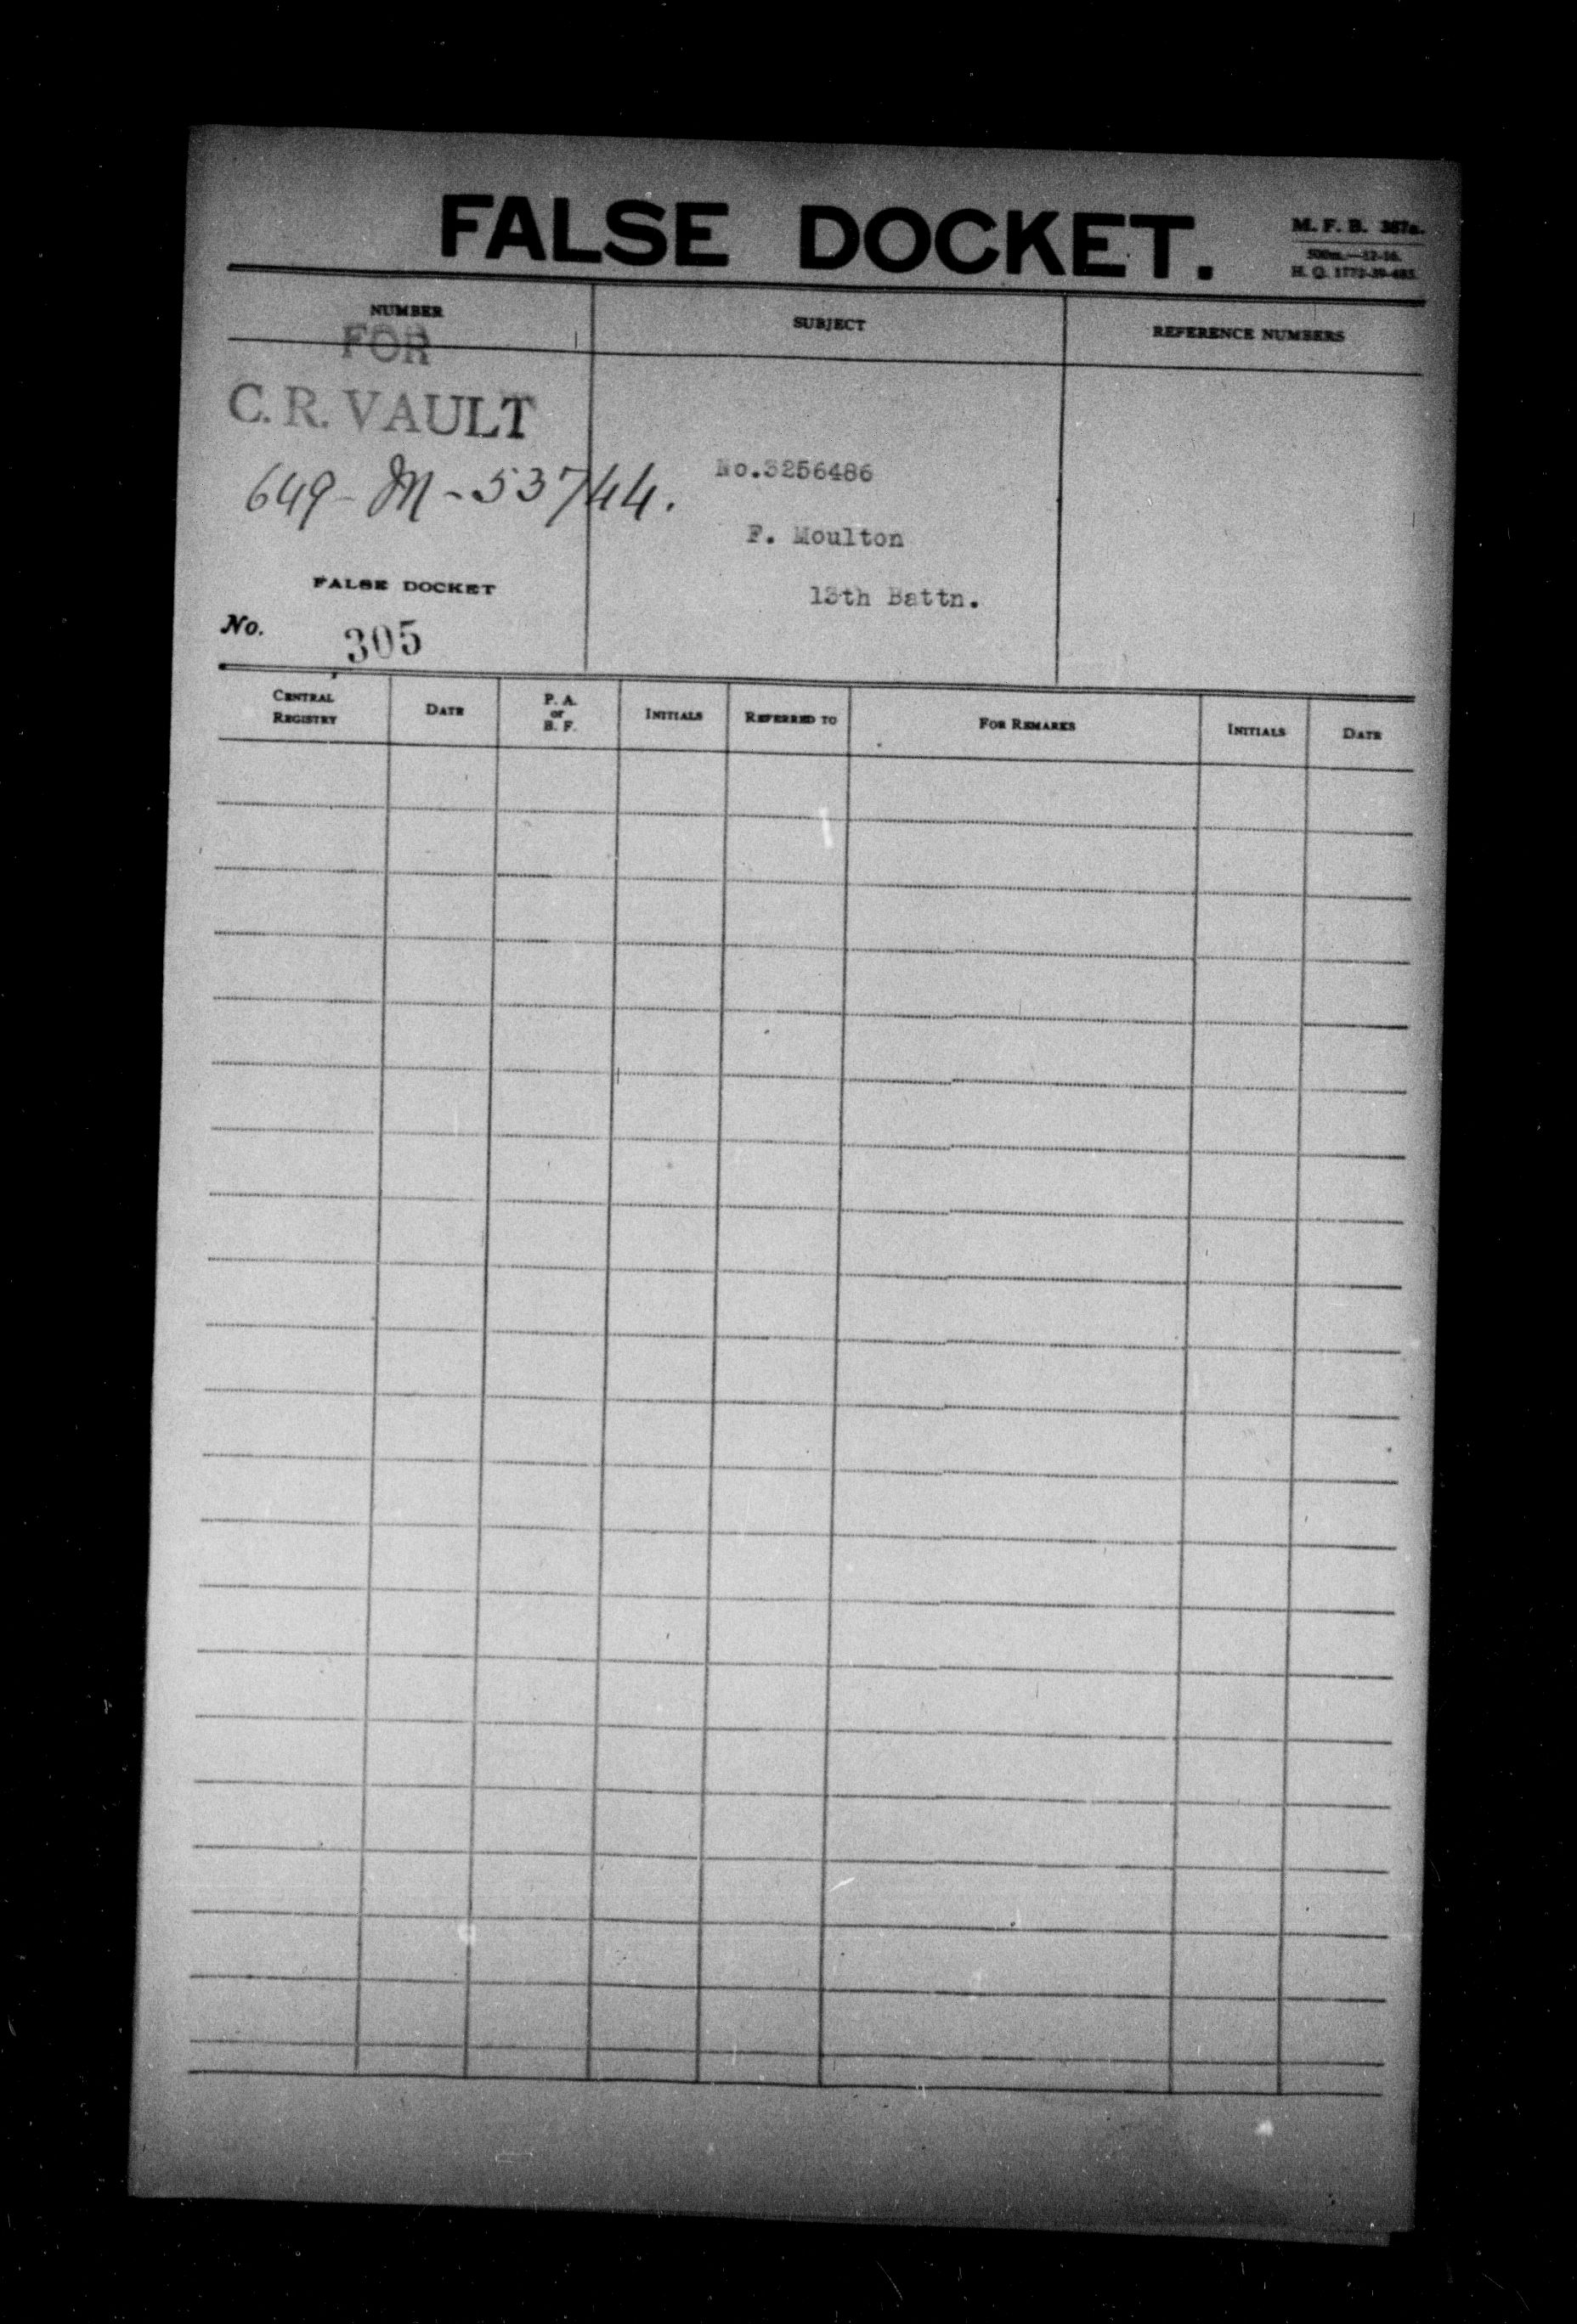 FALSE DOCKET.
M. F. B. 367a.
500m.—12-16.
H. Q. 1772-39-483.
NUMBER
SUBJECT
REFERENCE NUMBERS
FOR
C. R. VAULT
649-M-53744.
No.3256486
F. Moulton
13th Battn.
FALSE DOCKET
No. 305
CENTRAL REGISTRY
DATE
P. A. or B. F.
INITIALS
REFERRED TO
FOR REMARKS
INITIALS
DATE